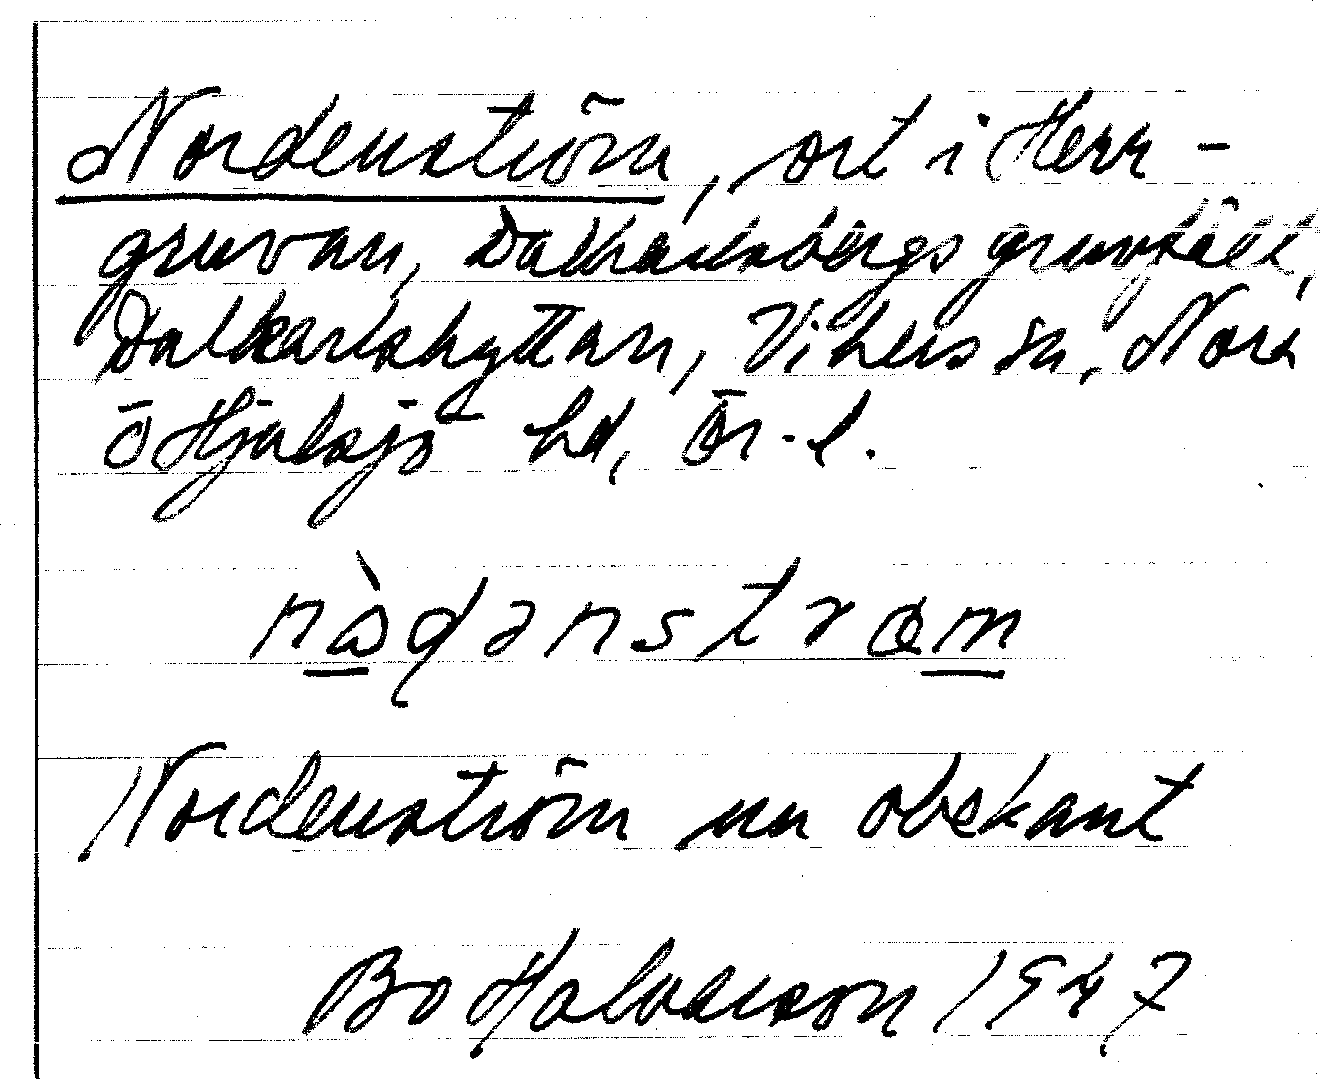 Nordenström, ort i Herr-
gruvan, Dalkarlsbergs gruvfält,
Dalkarlshyttan, Vikers sn, Nora
o Hjulsjö hd, Ör. l.
nò̱ɖənstrœm
Nordenström nu obekant
Bo Halvarsson 1947